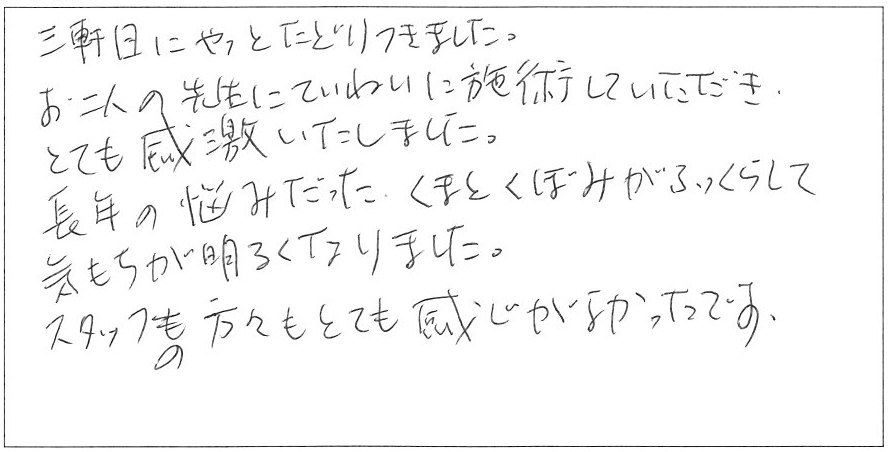 三軒目にやっとたどりつきました。
お二人の先生にていねいに施術していただき、
とても感激いたしました。
長年の悩みだった、くまとくぼみがふっくらして
気もちが明るくなりました。
スタッフの方々もとても感じがよかったです。